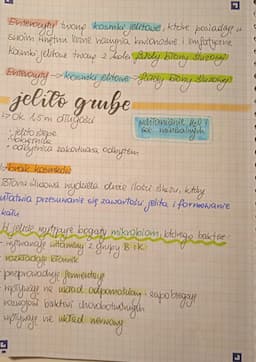 Enterocyty tworzą kosmki jelitowe, które posiadają w
swoim wnętrzu liczne naczynia krwionośne i limfatyczne
kosmki jelitowe tworzą z kolei fałdy błony śluzowej
Enterocyty → kosmki jelitowe → fałdy błony śluzowej
jelito grube
ok. 1,5 m długości
- jelito ślepe
- okrężnica
- odbytnica zakończona odbytem
- brak kosmków
Błona śluzowa wydziela duże ilości śluzu, który
ułatwia przesuwanie się zawartości jelita i formowanie
kału
W jelicie występuje bogaty mikrobiom, którego bakterie
- wytwarzają witaminy z grupy B i K
- rozkładają błonnik
- przeprowadzają fermentację
- wpływają na układ odpornościowy i zapobiegają
rozwojowi bakterii chorobotwórczych
- wpływają na układ nerwowy